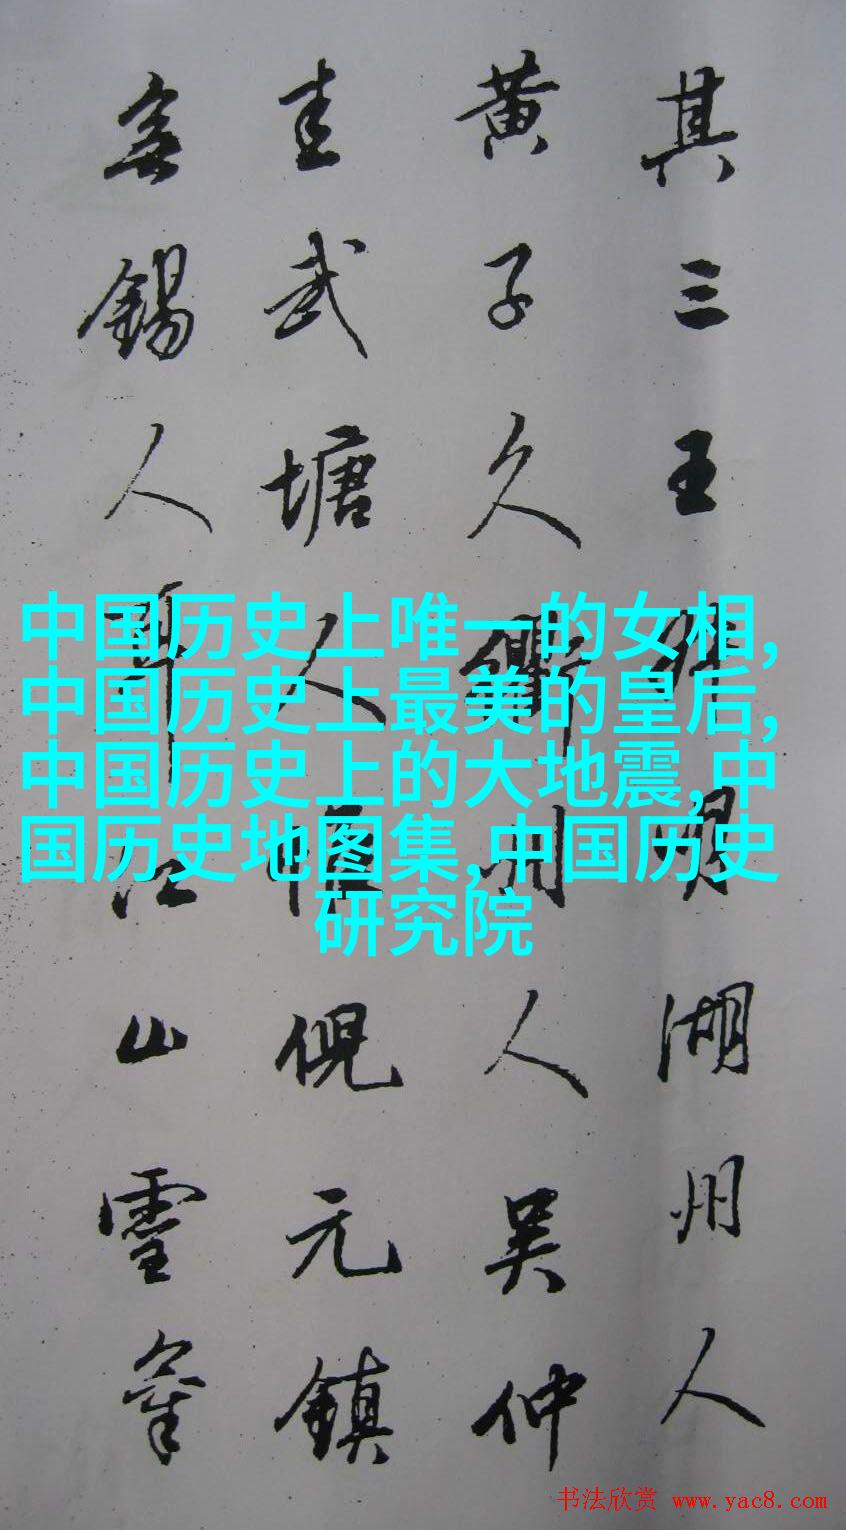 其三王叔明湖州人
黄子久衢州人吴仲
圭武塘人惟倪元镇
无锡人耳江山灵气
中国历史上唯一的女相,
中国历史上最美的皇后,
中国历史上的大地震,中
国历史地图集,中国历史
研究院
书法欣赏 www.yac8.com